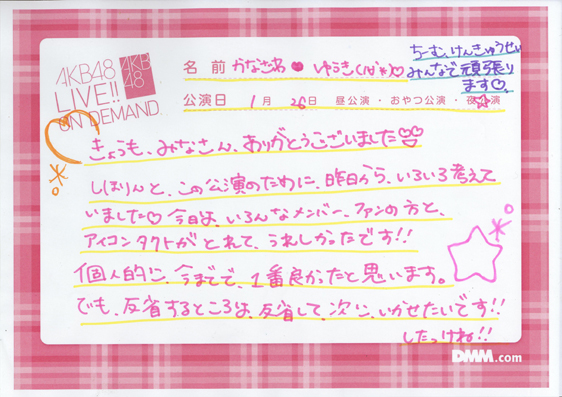 AKB48
LIVE!!
ON DEMAND
AKB
48
名前 かなざわ ゆうき(いばҳ)
ちーむ、けんきゅうせい
みんなで頑張り
ます♡
公演日 1月 26日 昼公演・おやつ公演・夜☆演
きょうも、みなさん、ありがとうございました
しほりんと、この公演のために、昨日から、いろいろ考えて
いました♡ 今日は、いろんなメンバー、ファンの方と、
アイコンタクトがとれて、うれしかったです!!
個人的に、今までで、1番良かったと思います。
でも、反省するところは、反省して、次に、いかせたいです!!
したっけね!!
DMM.com